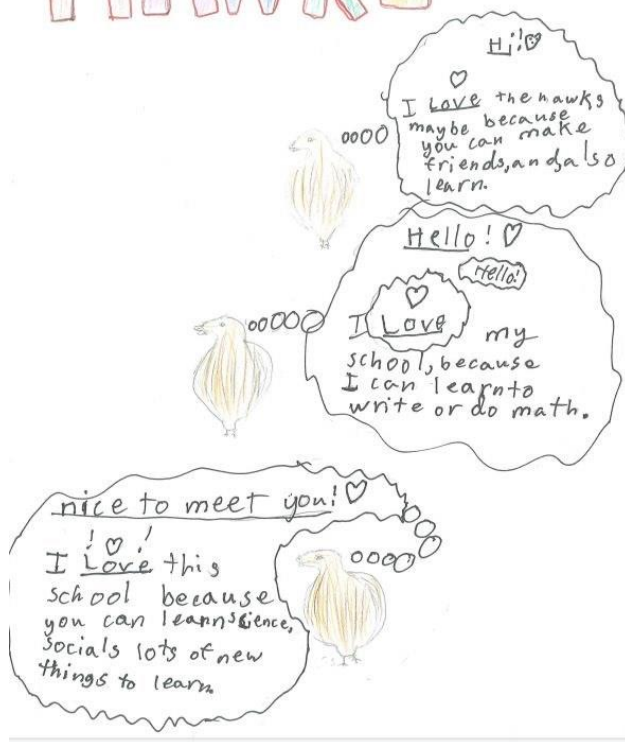 Hi!
I Love the hawks
maybe because
you can make
friends, and also
learn.
Hello!
Hello!
I Love my
school, because
I can learn to
write or do math.
nice to meet you!
! !
I Love this
school because
you can learn science,
socials lots of new
things to learn.